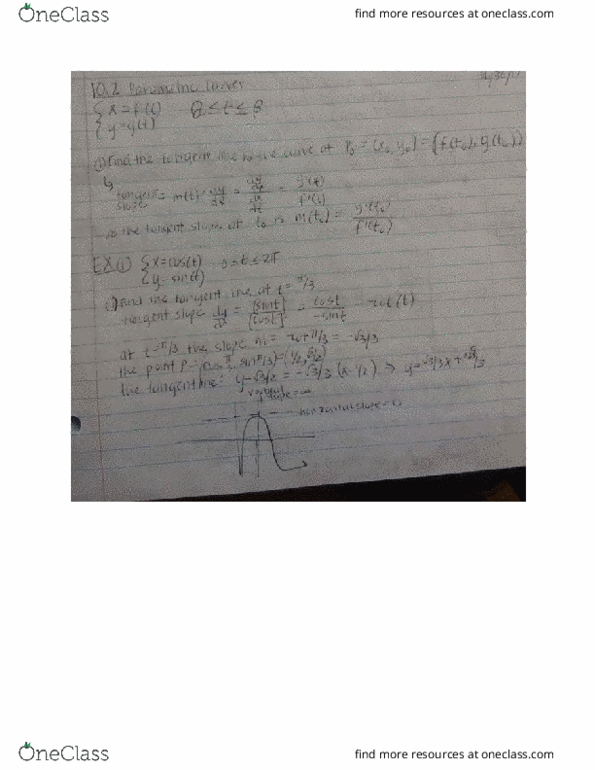 OneClass
find more resources at oneclass.com
10.2 Parametric Curves
{ x = f(t)
{ y = g(t)
① Find the tangent line to the curve at P₀ = (x₀, y₀) = (f(t₀), g(t₀))
↳ tangent slope = m(t) = dy/dx = (dy/dt)/(dx/dt) = g'(t)/f'(t)
so the tangent slope at t₀ is m(t₀) = g'(t₀)/f'(t₀)
EX ① { x = cos(t) 0 ≤ t ≤ 2π
{ y = sin(t)
Find the tangent line at t = π/3
tangent slope dy/dx = [sint]/[cost] = cost/-sint = -cot(t)
at t = π/3 the slope m = -cot π/3 = -√3/3
the point P = (cos π/3, sin π/3) = (1/2, √3/2)
the tangent line: y - √3/2 = -√3/3 (x - 1/2) →
slope = ∞
horizontal slope =
OneClass
find more resources at oneclass.com